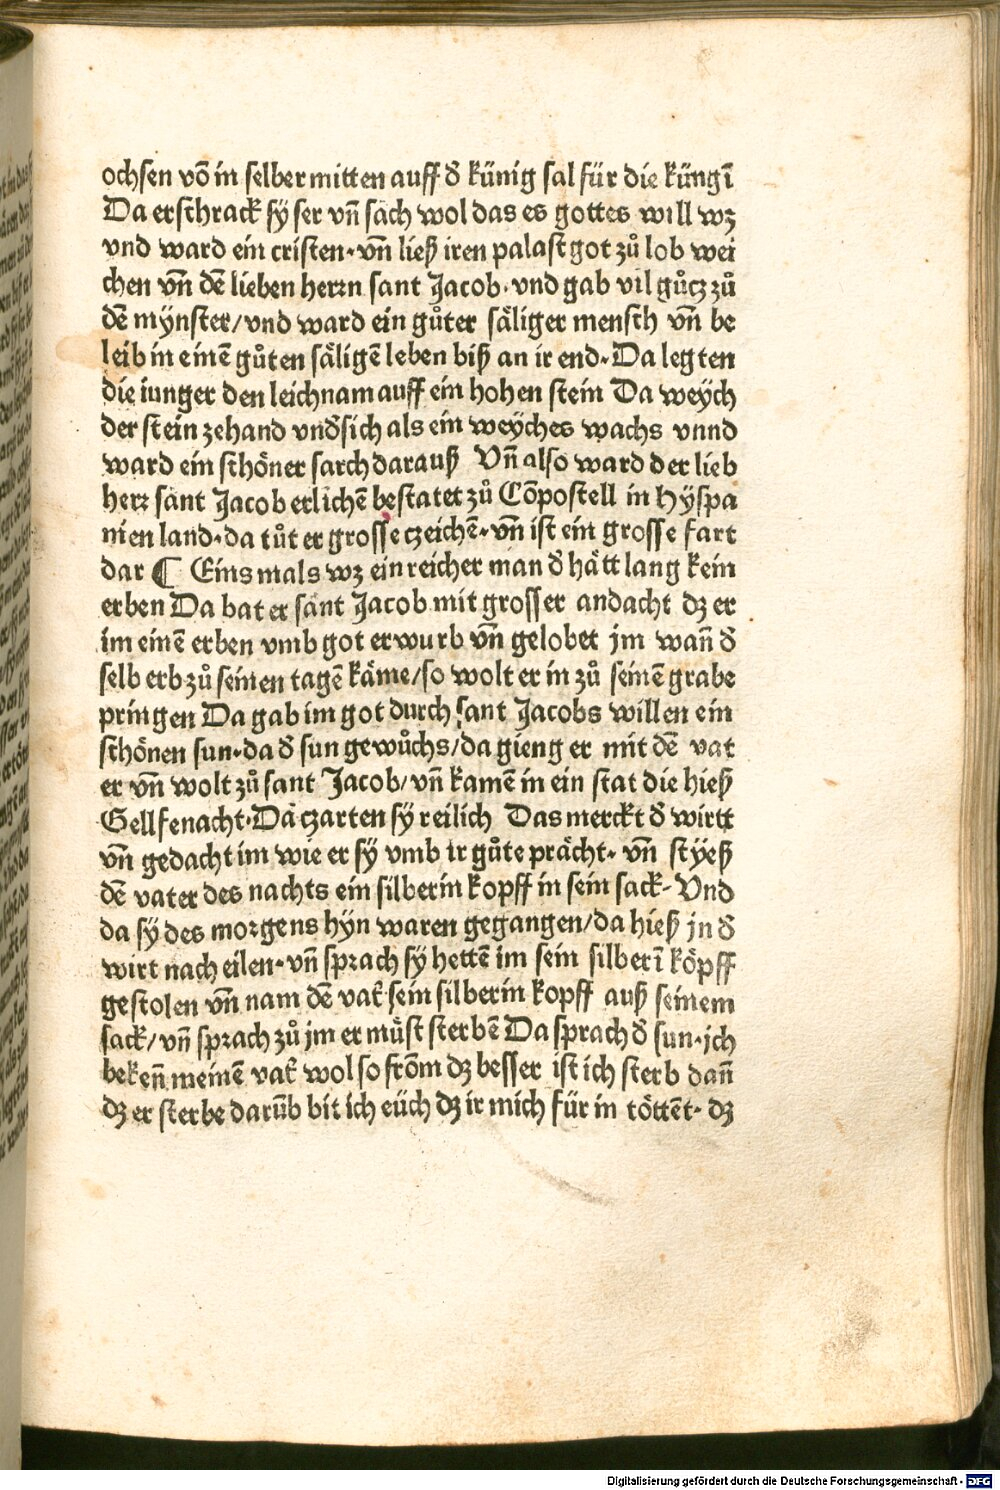 ochsen vō in selber mitten auff d̕ künig sal für die küngī
Da erschrack sÿ ser vn̄ sach wol das es gottes will wz
vnd ward ein cristen· vn̄ ließ iren palast got zů lob wei
chen vn̄ dē lieben herrn sant Jacob· vnd gab vil gůcz zů
dē mÿnster/ vnd ward ein gůter säliger mensch vn̄ be
leib in einē gůten säligē leben biß an ir end· Da legten
die iunger den leichnam auff ein hohen stein Da weÿch
der stein zehand vnd̕sich als ein weÿches wachs vnnd
ward ein schöner sarch darauß Vn̄ also ward der lieb
herr sant Jacob erlichē bestatet zů Cōpostell in Hÿspa
nien land· da tůt er grosse czeichē· vn̄ ist ein grosse fart
dar ¶ Eins mals wz ein reicher man d̕ hätt lang kein
erben Da bat er sant Jacob mit grosser andacht dz er
im einē erben vmb got erwurb vn̄ gelobet jm wan̄ d̕
selb erb zů seinen tagē käme/ so wolt er in zů seinē grabe
pringen Da gab im got durch sant Jacobs willen ein
schönen sun· da d̕ sun gewůchs/ da gieng er mit dē vat
er vn̄ wolt zů sant Jacob/ vn̄ kamē in ein stat die hieß
Gellfenacht· Da czarten sÿ reilich Das merckt d̕ wirtt
vn̄ gedacht im wie er sÿ vmb ir gůte prächt· vn̄ stÿeß
dē vater des nachts ein silberin kopff in sein sack· Vnd
da sÿ des morgens hÿn waren gegangen/ da hieß jn d̕
wirt nach eilen· vn̄ sprach sÿ hettē im sein silberī köpff
gestolen vn̄ nam dē vat̕ sein silberin kopff auß seinem
sack/ vn̄ sprach zů jm er müst sterbē Da sprach d̕ sun· ich
beken̄ meinē vat̕ wol so frōm dz besser ist ich sterb dan̄
dz er sterbe darūb bit ich eüch dz ir mich für in töttēt· dz
Digitalisierung gefördert durch die Deutsche Forschungsgemeinschaft - DFG